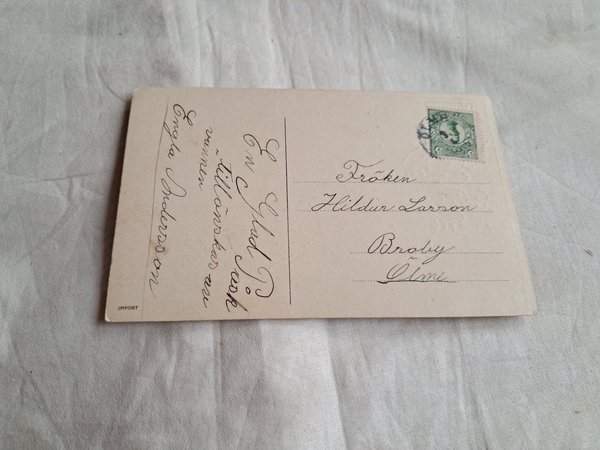 En Glad Påsk
tillönskas av
vännen
Engla Andersson
Fröken
Hildur Larson
Broby
Ölme
IMPORT